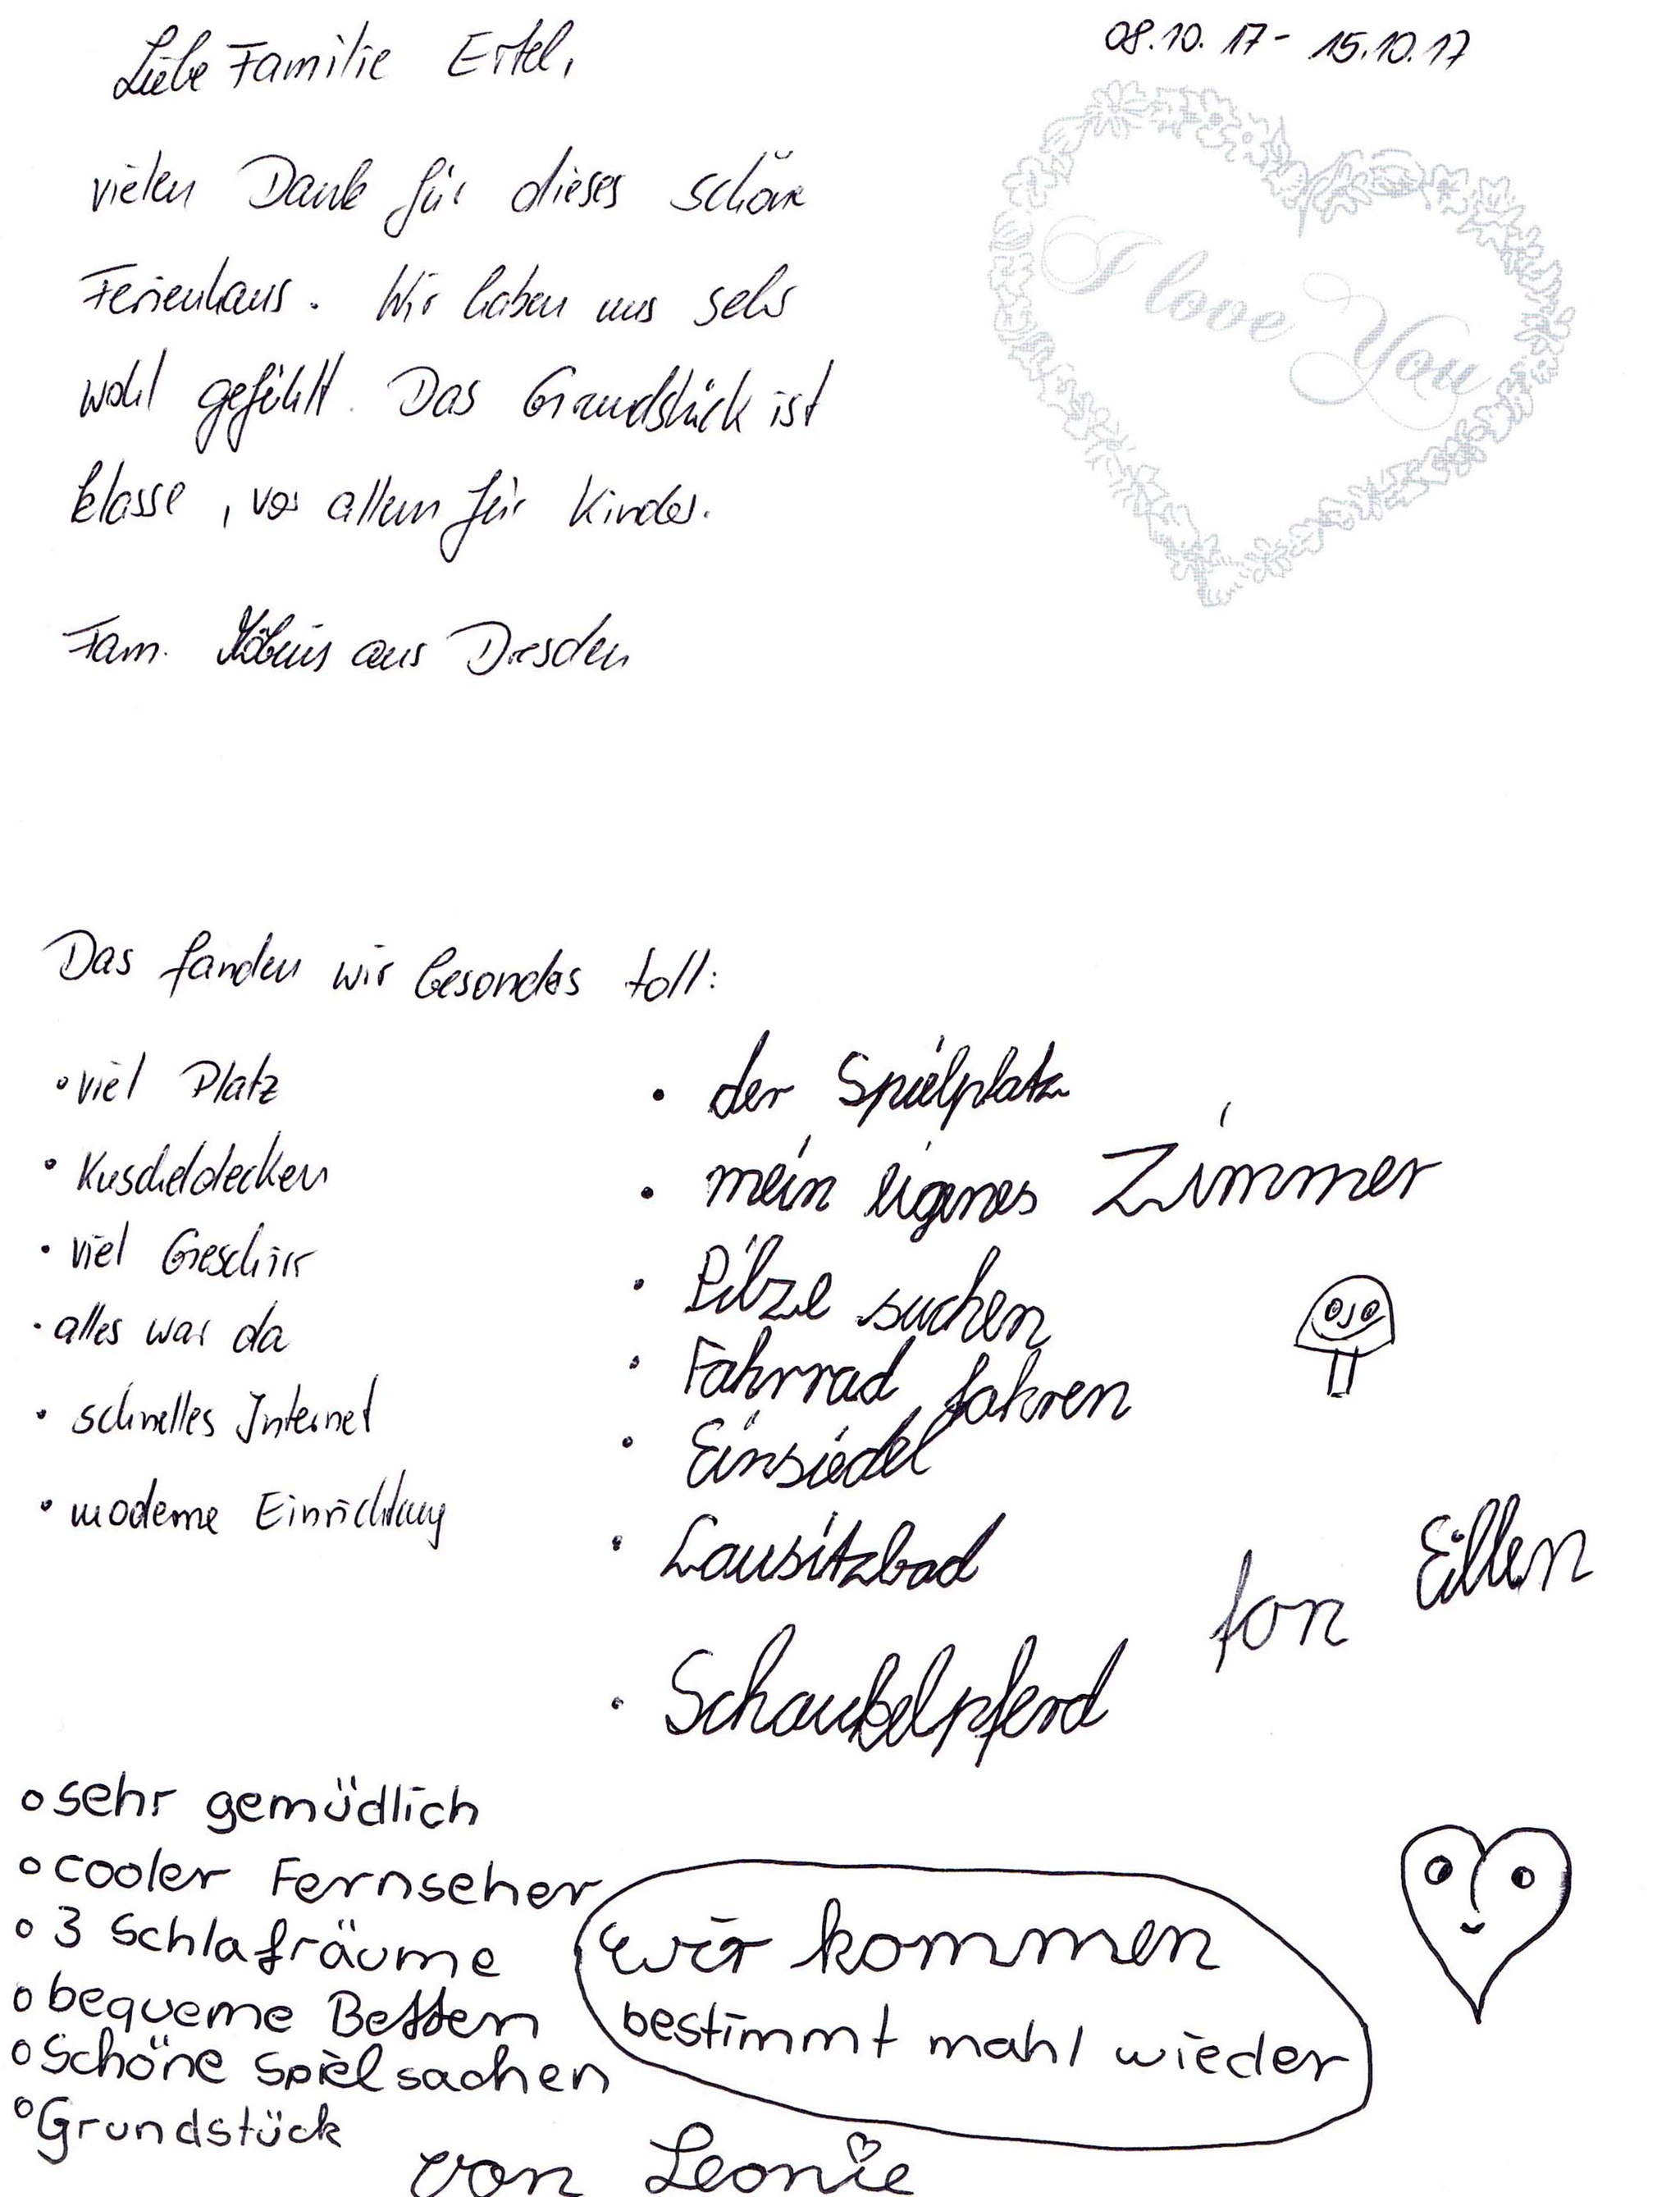 08.10.17 - 15.10.17
Liebe Familie Ertel,
vielen Dank für dieses schöne
Ferienhaus. Wir haben uns sehr
wohl gefühlt. Das Grundstück ist
klasse, vor allem für Kinder.
Fam. Möbius aus Dresden
I love You
Das fanden wir besonders toll:
• viel Platz
• Kuscheldecken
• viel Geschirr
• alles war da
• schnelles Internet
• moderne Einrichtung
• der Spielplatz
• mein eigenes Zimmer
• Pilze suchen
• Fahrrad fahren
• Einsiedel
• Lausitzbad
• Schaukelpferd
fon Eillen
• sehr gemüdlich
• cooler Fernseher
• 3 Schlafräume
• bequeme Betten
• Schöne Spielsachen
• Grundstück
wir kommen
bestimmt mahl wieder
von Leonie